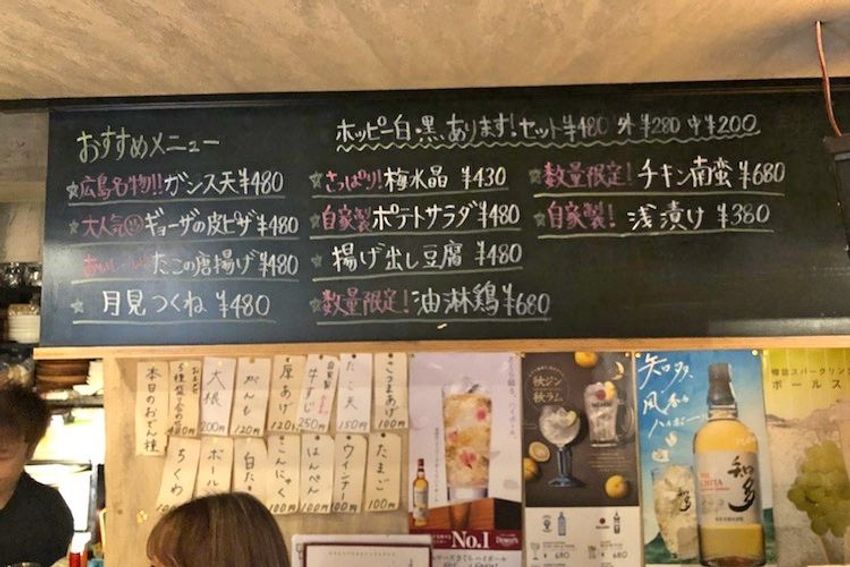 おすすめメニュー
ホッピー白・黒、あります!セット¥480 外¥280 中¥200
☆広島名物!!ガンス天¥480
☆大人気ギョーザの皮ピザ¥480
たこの唐揚げ¥480
☆月見つくね¥480
☆さっぱり!梅水晶 ¥430
☆自家製ポテトサラダ¥480
☆揚げ出し豆腐 ¥480
☆数量限定!油淋鶏¥680
☆数量限定!チキン南蛮¥680
☆自家製!浅漬け ¥380
本日のおでん種
おまかせ
5種盛り合わせ
大根
200円
がんも
120円
厚あげ
120円
自家製
牛すじ
250円
たこ天
150円
さつまあげ
100円
ちくわ
ボール
白た
こんにゃく
はんぺん
100円
ウインナー
100円
たまご
100円
No.1
Dewar's
秋ジン
秋ラム
¥680
¥680
知多、
風香る
ハイボール
THE
CHITA
知多
樽詰スパークリング
ポールス